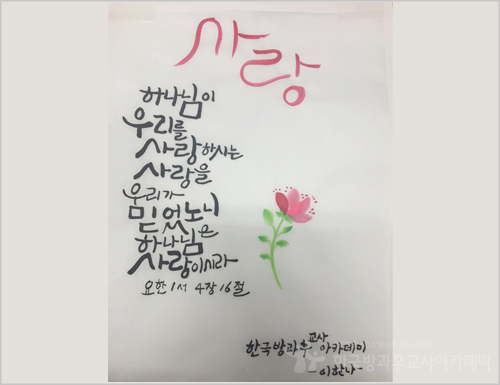 사랑
하나님이
우리를
사랑하시는
사랑을
우리가
믿었노니
하나님은
사랑이시라
요한1서 4장 16절
한국방과후교사아카데미
-이한나-
한국방과후교사아카데미